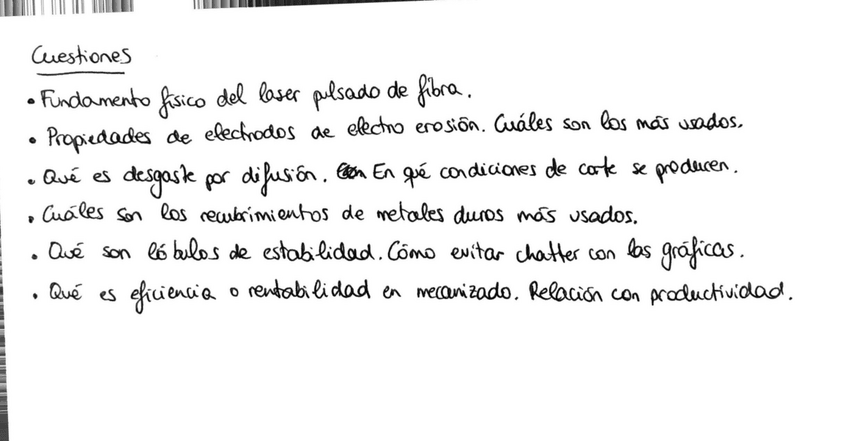 Cuestiones
• Fundamento físico del laser pulsado de fibra.
• Propiedades de electrodos de electro erosión. Cuáles son los más usados.
• Qué es desgaste por difusión. En qué condiciones de corte se producen.
• Cuáles son los recubrimientos de metales duros más usados.
• Qué son lóbulos de estabilidad. Cómo evitar chatter con las gráficas.
• Qué es eficiencia o rentabilidad en mecanizado. Relación con productividad.